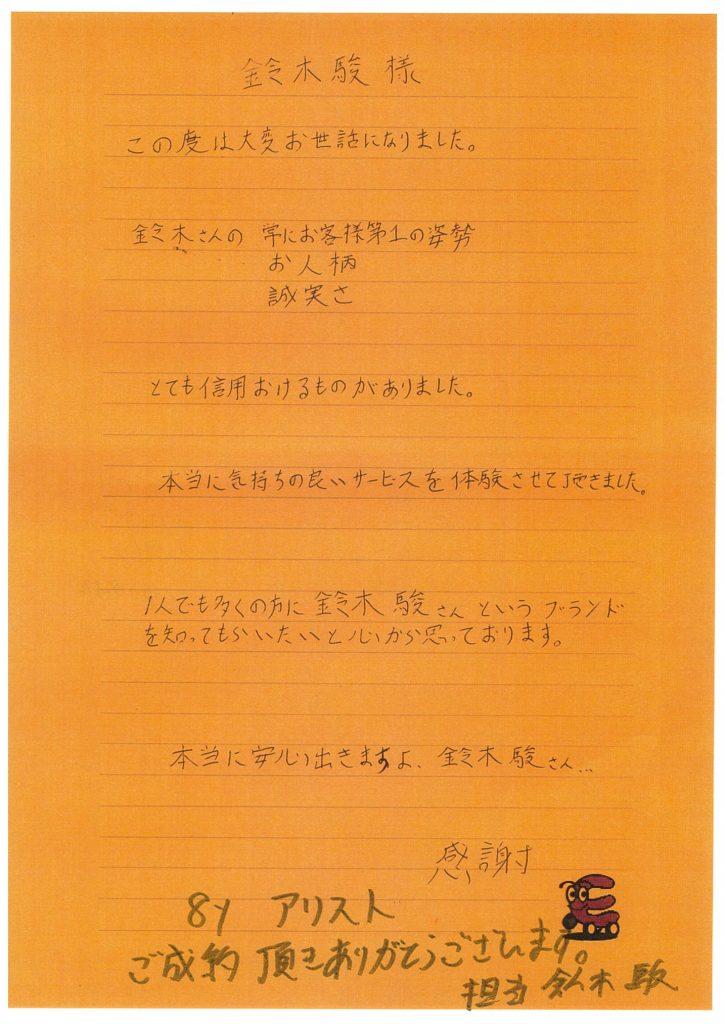 鈴木駿様
この度は大変お世話になりました。
鈴木さんの 常にお客様第1の姿勢
お人柄
誠実さ
とても信用おけるものがありました。
本当に気持ちの良いサービスを体験させて頂きました。
1人でも多くの方に鈴木駿さんというブランド
を知ってもらいたいと心から思っております。
本当に安心出きますよ、鈴木駿さん…
感謝
8y アリスト
ご成約頂きありがとうございます。
担当 鈴木 駿